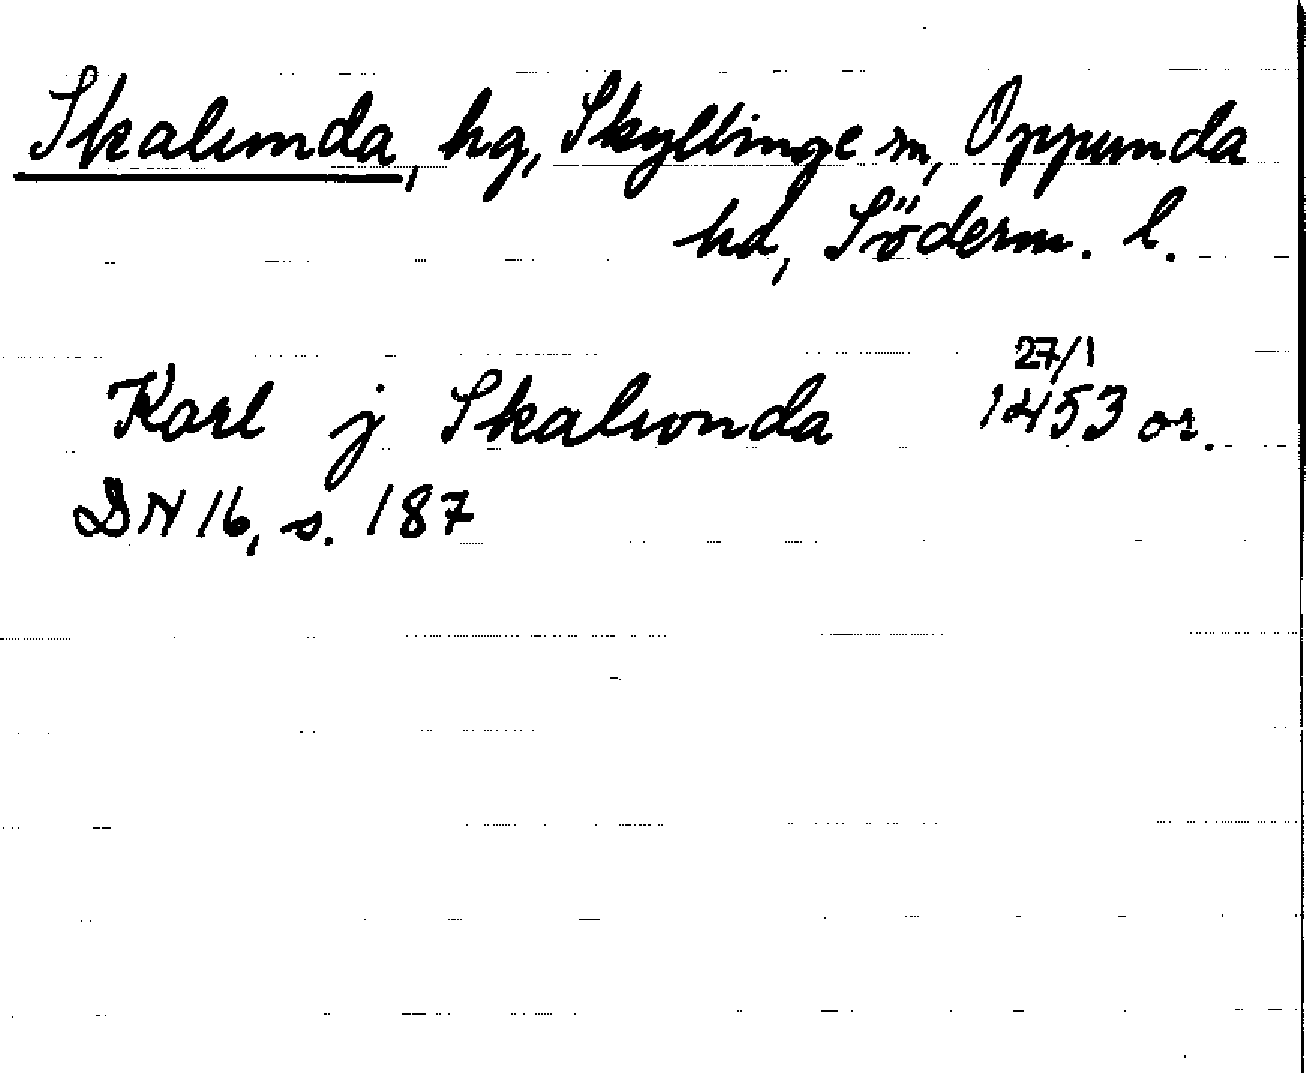 Skalunda, hg, Skyttinge sn, Oppunda
hd, Söderm. l.
Karl j Skalwnda 27/1 1453 or.
DN 16, s. 187